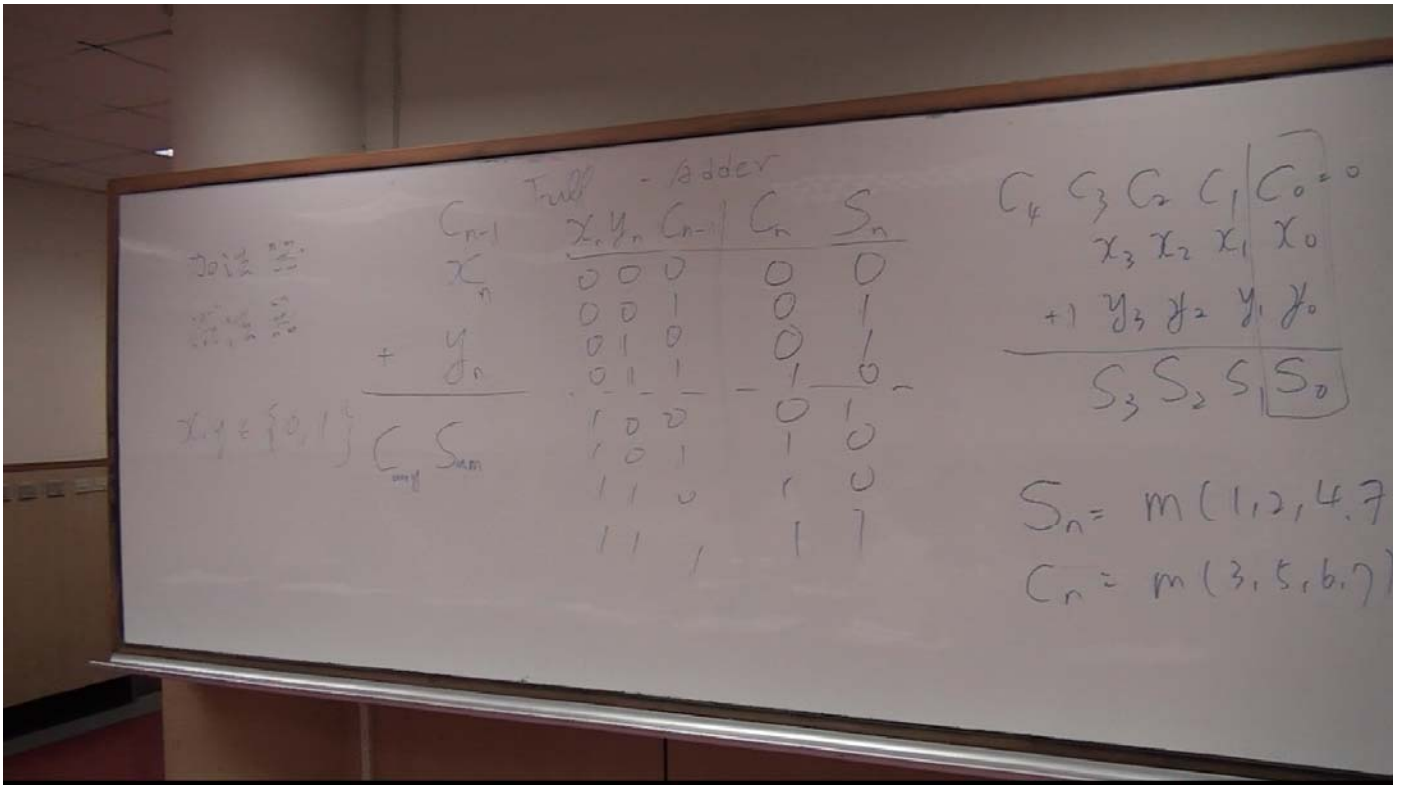 加法器
減法器
x, y ∈ {0, 1}
C_{n-1}
x_n
+ y_n
C_{arry} S_{um}
Full - Adder
x_n y_n C_{n-1} | C_n S_n
0 0 0 0 0
0 0 1 0 1
0 1 0 0 1
0 1 1 1 0
1 0 0 0 1
1 0 1 1 0
1 1 0 1 0
1 1 1 1 1
C_4 C_3 C_2 C_1 C_0 = 0
x_3 x_2 x_1 x_0
+) y_3 y_2 y_1 y_0
S_3 S_2 S_1 S_0
S_n = m(1, 2, 4, 7
C_n = m(3, 5, 6, 7)